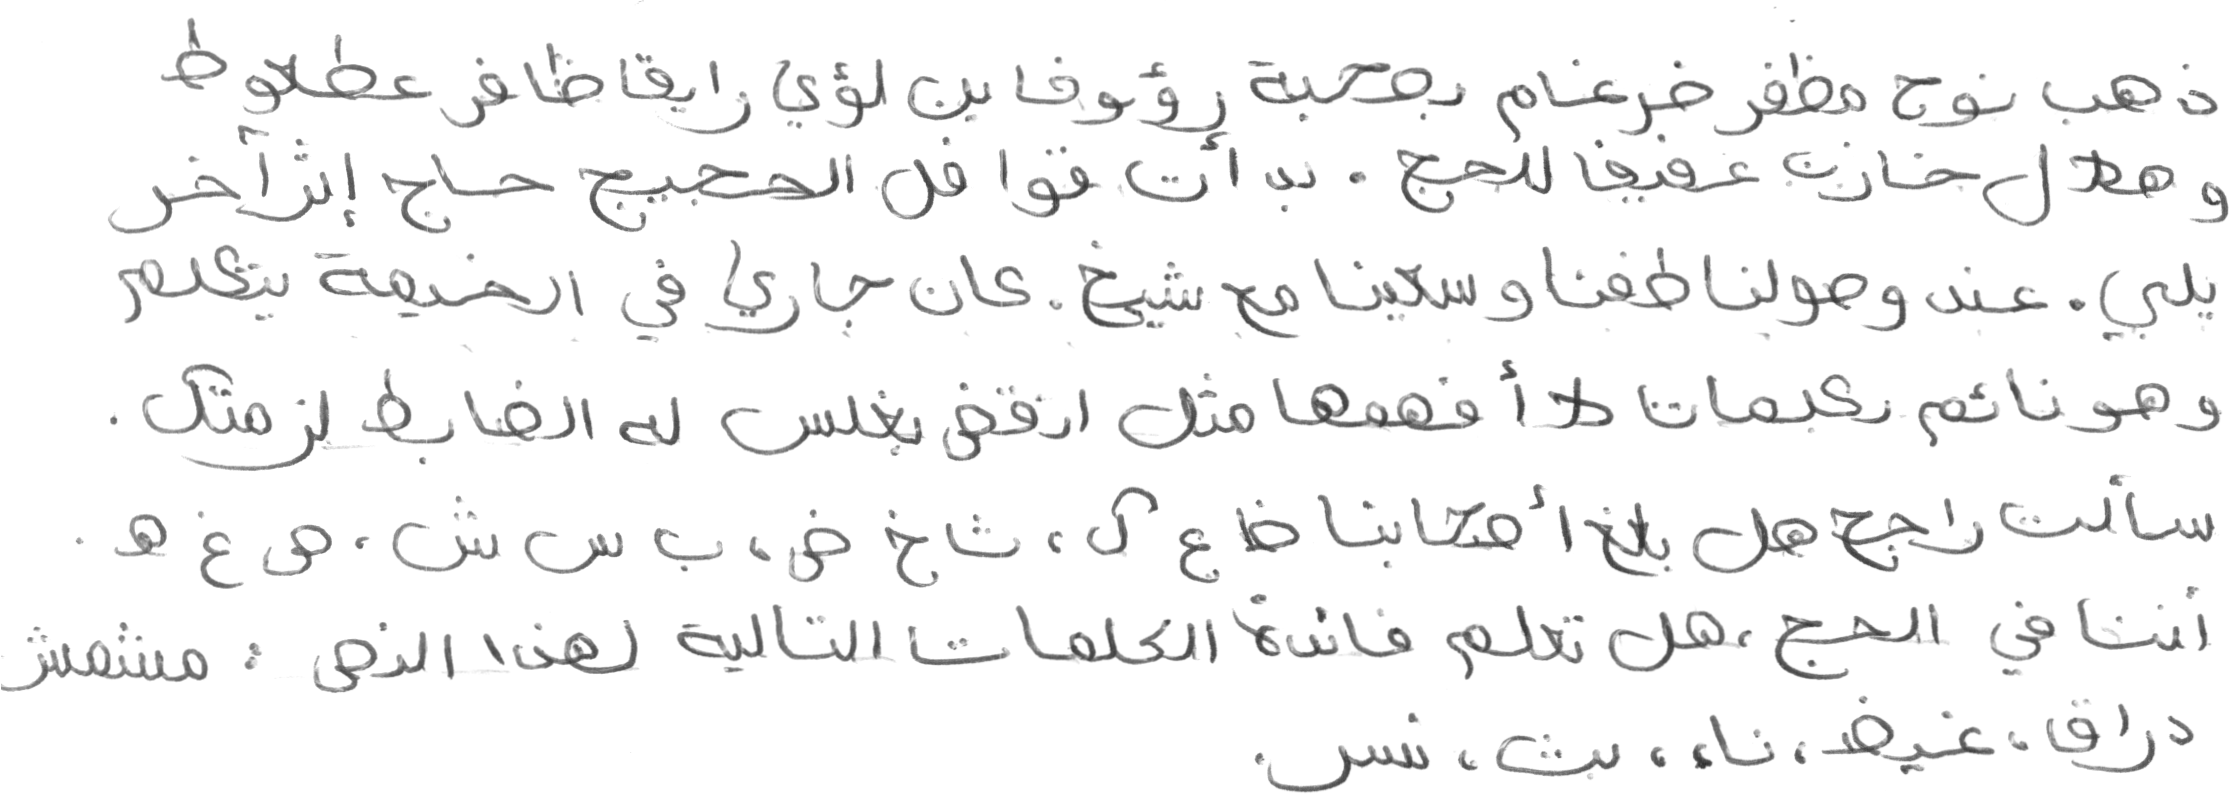 ذهب نوح مظفر ضرغام بصحبة رؤوف بن لؤي رايق ظافر عطعوط
وهلال خازن عفيفا للحج . بدأت قوافل الحجيج حاج إثر آخر
يلبي . عند وصولنا طفنا وسعينا مع شيخ . كان جاري في الخيمة يتكلم
وهو نائم بكلمات لا أفهمها مثل ارقض بغلس له الضابط لز متك .
سألت راجح هل بلغ أصحابنا ظ ع ك ، ث خ ض ، ب س ش ، ص غ هـ .
أننا في الحج ، هل تعلم فائدة الكلمات التالية لهذا النص : مشمش
دراق ، غيظ ، ناء ، بث ، نسس .